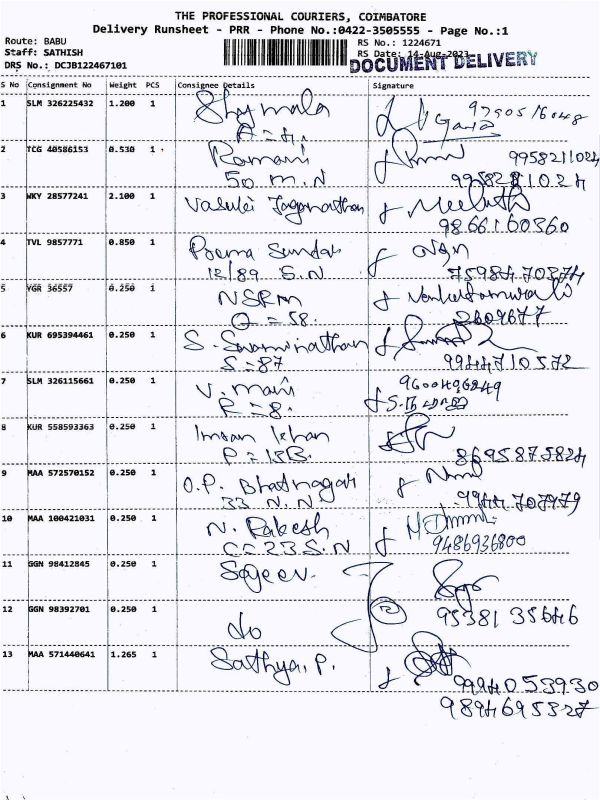 THE PROFESSIONAL COURIERS, COIMBATORE
Delivery Runsheet - PRR - Phone No.:0422-3505555 - Page No.:1
Route: BABU
RS No.: 1224671
Staff: SATHISH
RS Date: 14-Aug-2023
DRS No.: DCJB122467101
DOCUMENT DELIVERY
S No Consignment No Weight PCS Consignee Details Signature
1 SLM 326225432 1.200 1 Shymala
A = 4. 9790516048
2 TCG 40586153 0.530 1 Ramani 9958211024
50 M.N 9958211024
3 WKY 28577241 2.100 1 Vasuki Jaganathan
9866160360
4 TVL 9857771 0.850 1 Poorna Sundar
12/89 S.N 7598470374
5 YGR 36557 0.250 1 NSRM
O = 58. 2609677
6 KUR 695394461 0.250 1 S. Swaminathan
S = 87 9944710572
7 SLM 326115661 0.250 1 V. Mani 9600496849
R = 8.
8 KUR 558593363 0.250 1 Imran Khan
P = 13B. 8695875824
9 MAA 572570152 0.250 1 O.P. Bhatnagar
33 N.N 9944707979
10 MAA 100421031 0.250 1 N. Rakesh
CC = 23 S.N 9486936800
11 GGN 98412845 0.250 1 Sajeev.
12 GGN 98392701 0.250 1 do 2 95381 35646
13 MAA 571440641 1.265 1 Sathya. P.
9994053930
9894695327